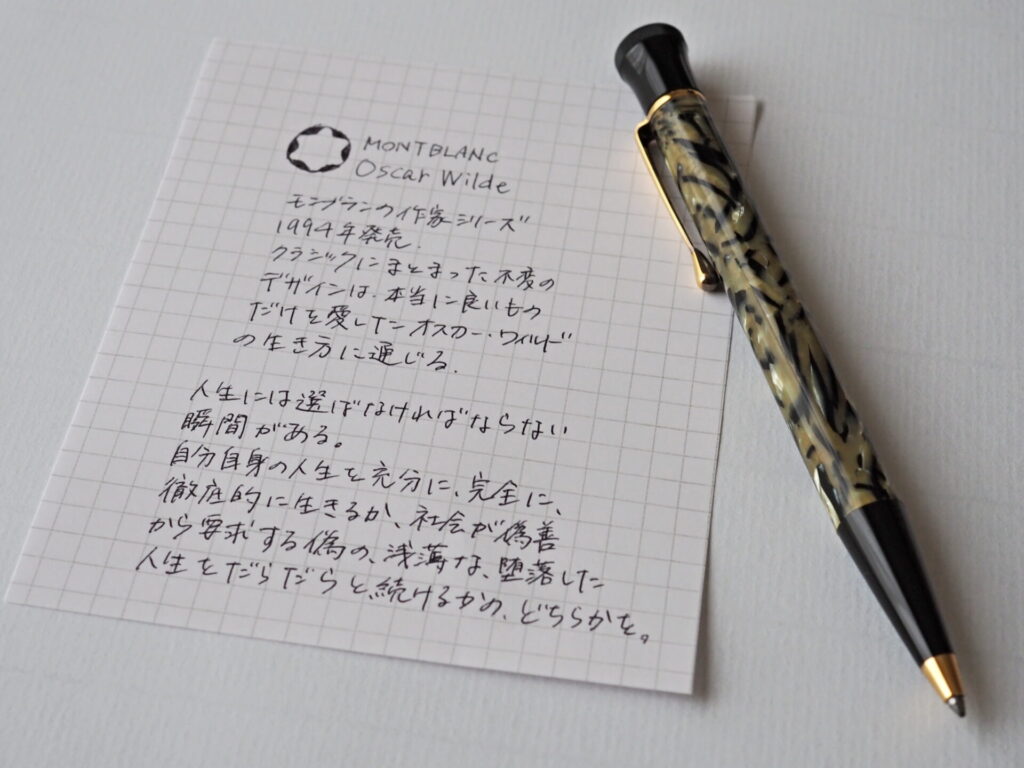 MONTBLANC
Oscar Wilde
モンブランの作家シリーズ
1994年発売.
クラシックにまとまった不変の
デザインは、本当に良いもの
だけを愛したオスカー・ワイルド
の生き方に通じる.
人生には選ばなければならない
瞬間がある。
自分自身の人生を充分に、完全に、
徹底的に生きるか、社会が偽善
から要求する偽の、浅薄な、堕落した
人生をだらだらと続けるかの、どちらかを。